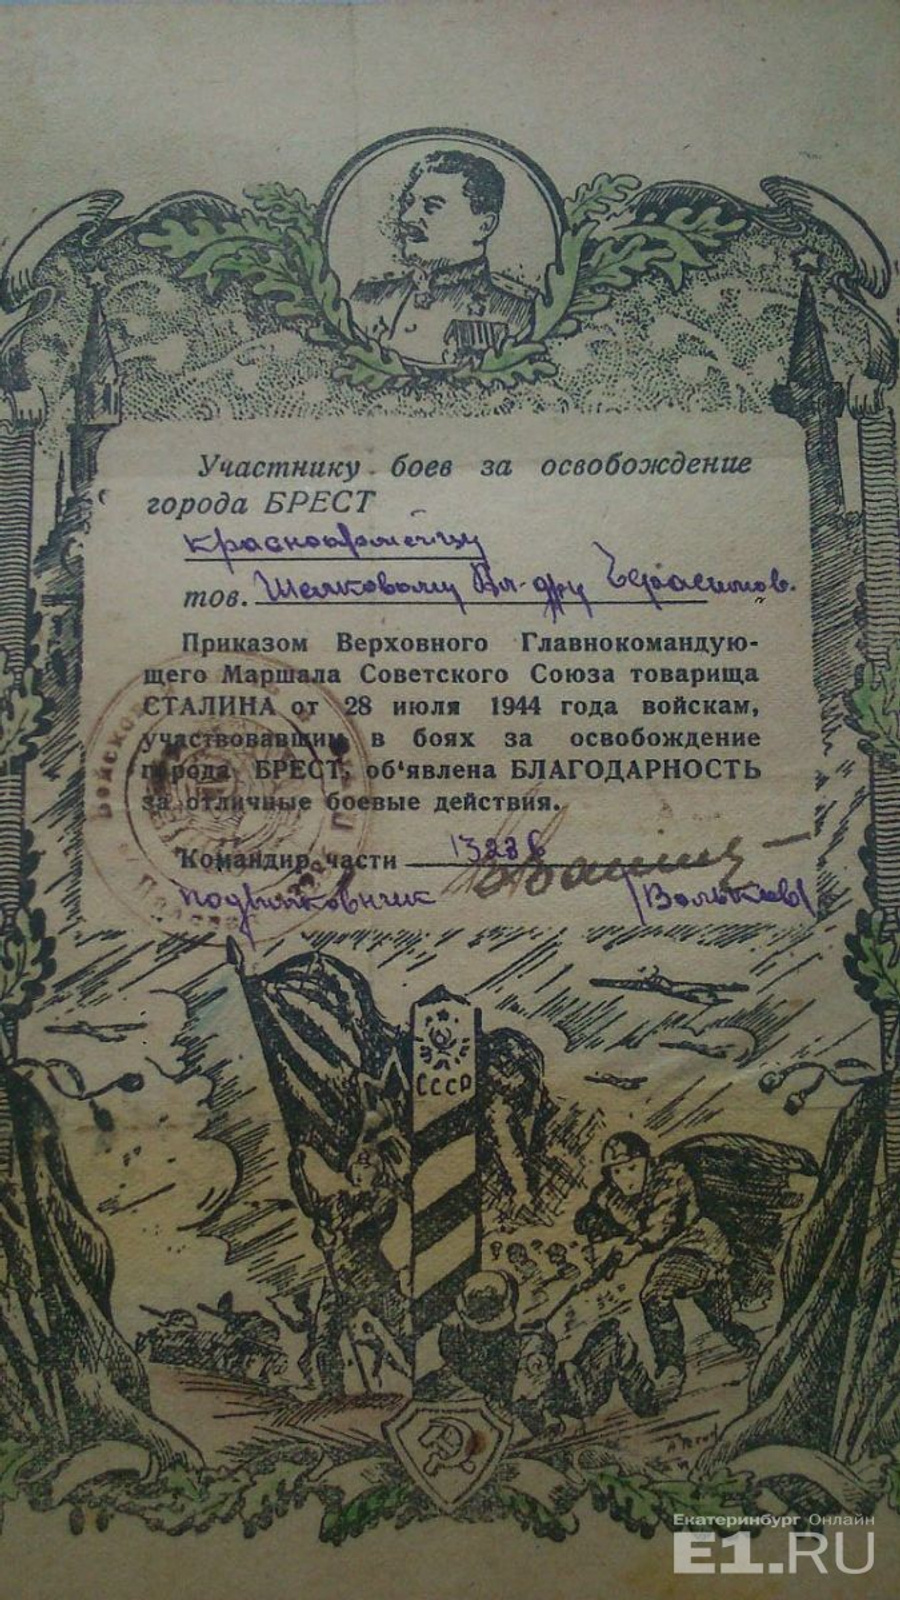 Участнику боев за освобождение
города БРЕСТ
красноармейцу
тов. Шелковому Ал-дру Герасимов.
Приказом Верховного Главнокомандую-
щего Маршала Советского Союза товарища
СТАЛИНА от 28 июля 1944 года войскам,
участвовавшим в боях за освобождение
города БРЕСТ, об‘явлена БЛАГОДАРНОСТЬ
за отличные боевые действия.
Командир части
подполковник
СССР
Екатеринбург Онлайн
E1.RU